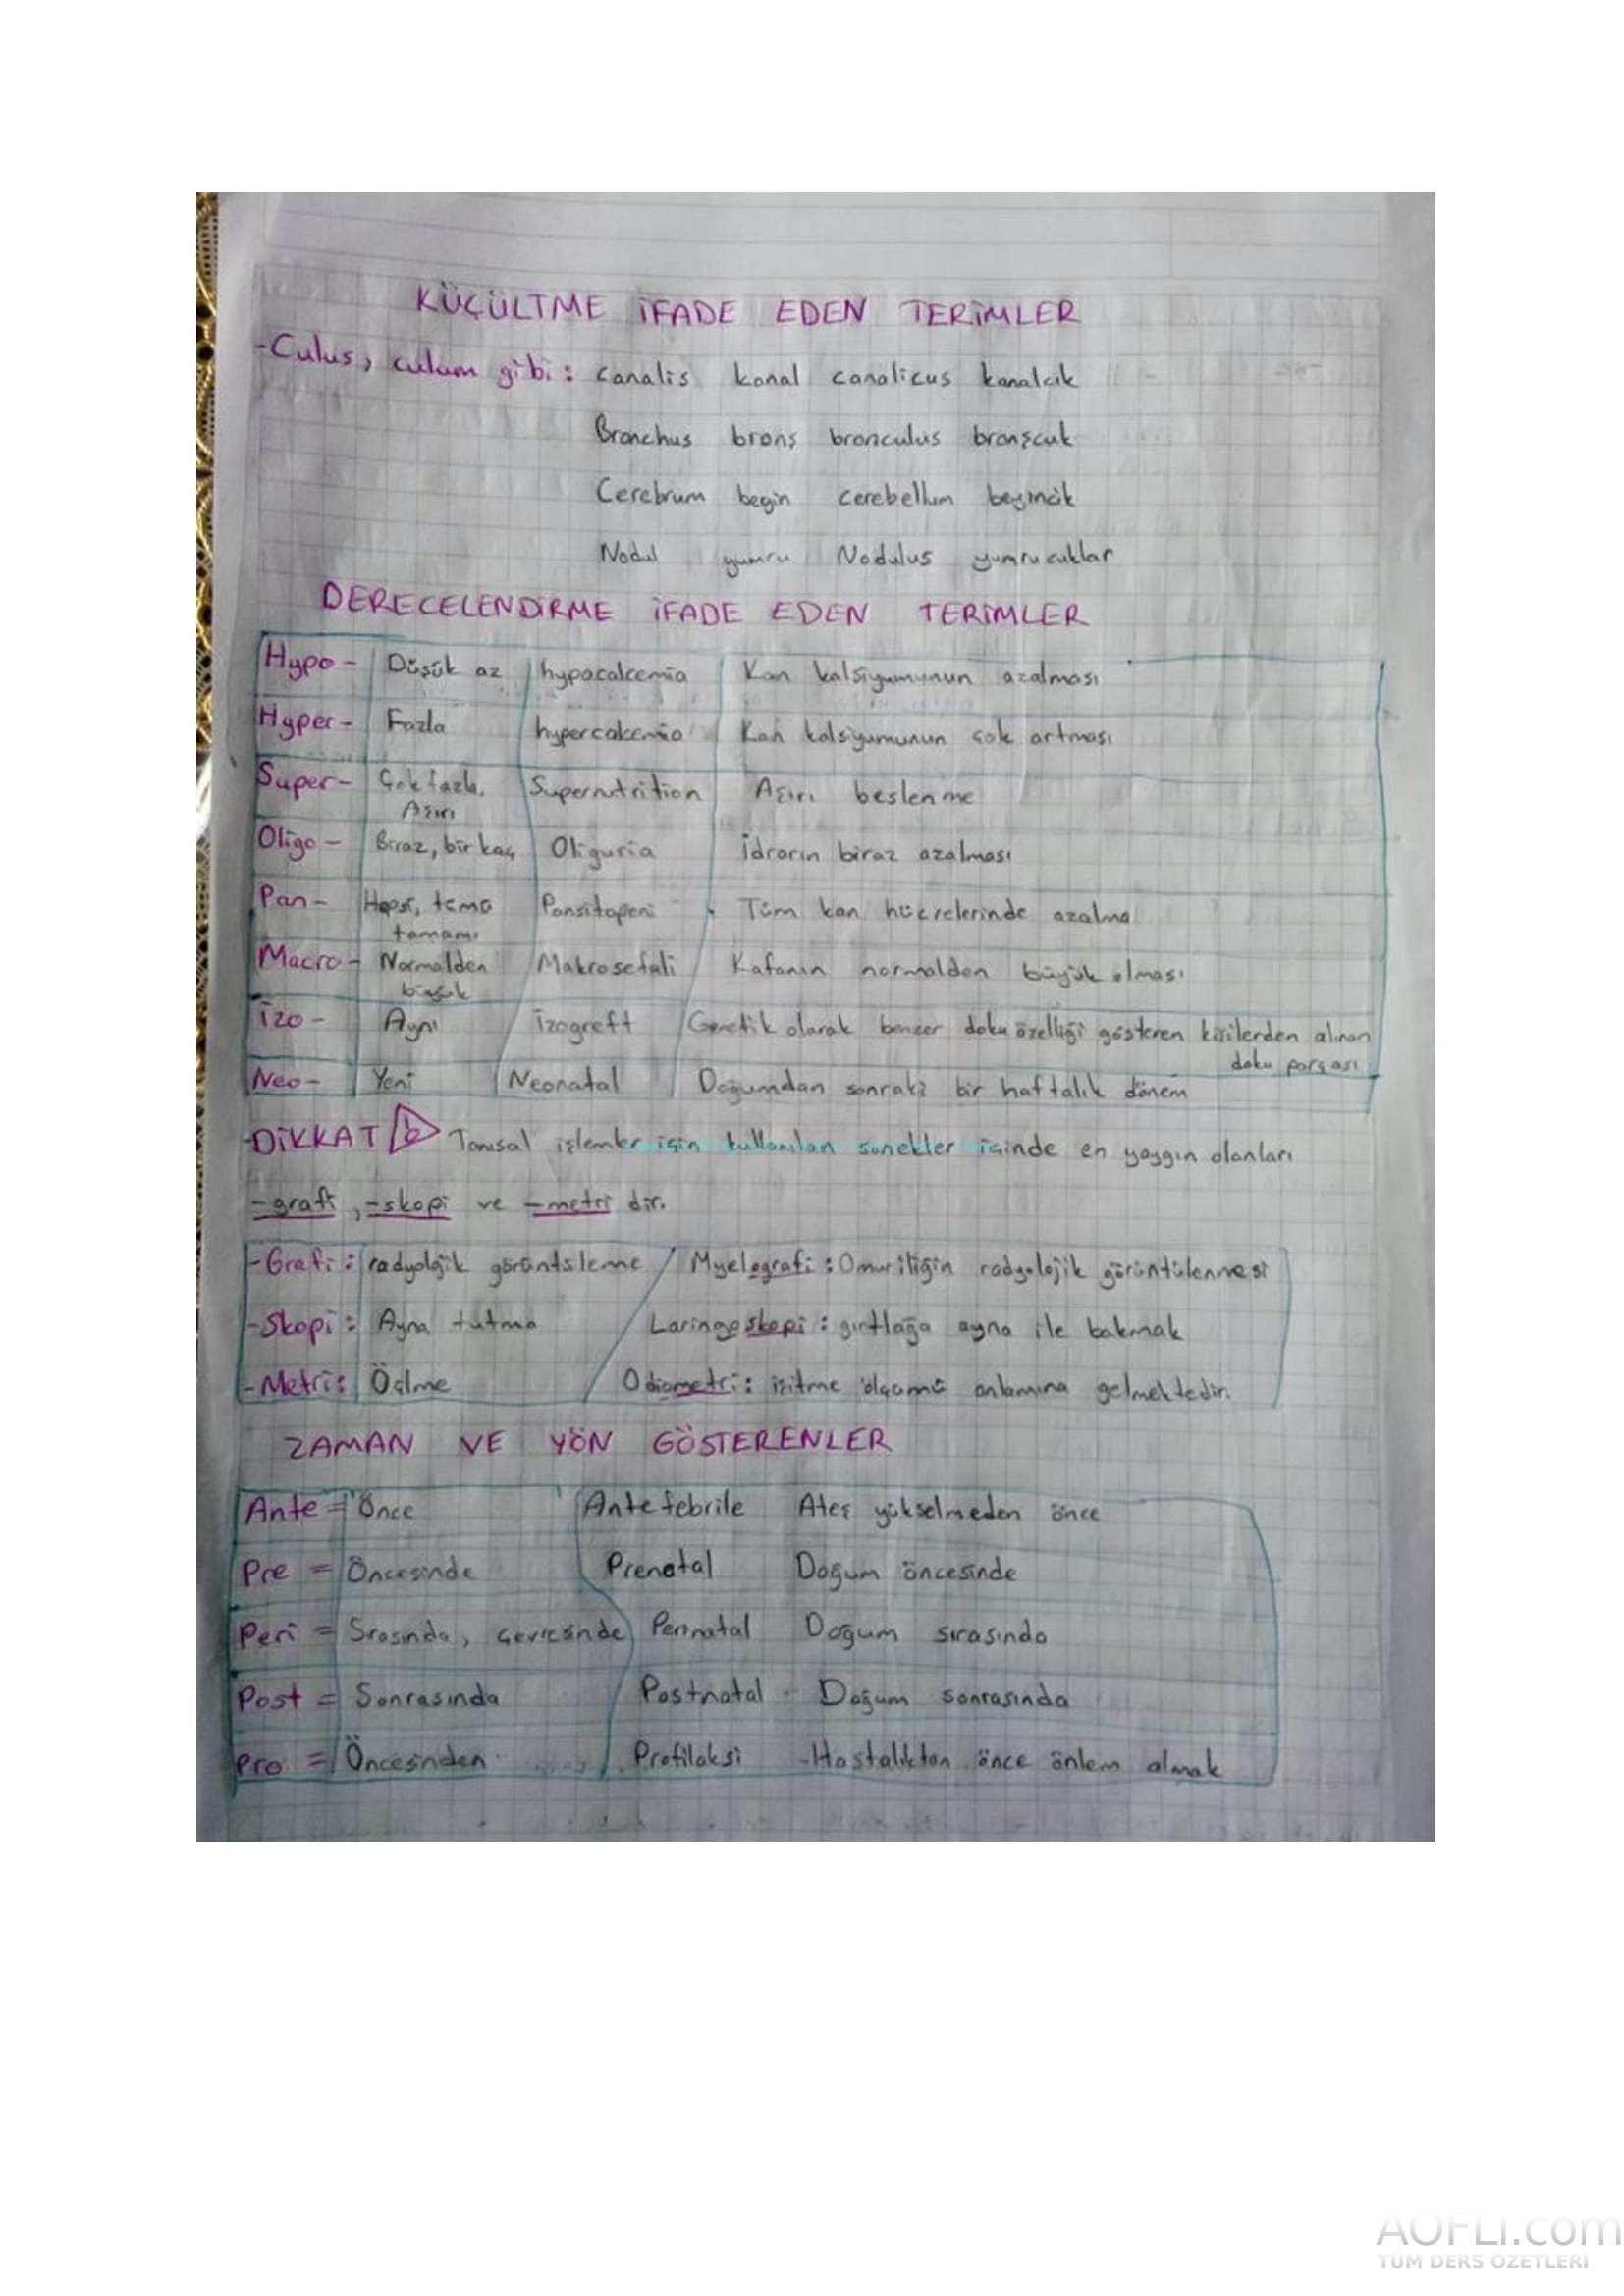 KÜÇÜLTME İFADE EDEN TERİMLER
-Culus, culum gibi: canalis kanal canalicus kanalcık
Bronchus bronş bronculus bronşcuk
Cerebrum begin cerebellum beyincik
Nodul yumru Nodulus yumrucuklar
DERECELENDİRME İFADE EDEN TERİMLER
Hypo- Düşük az hypocalcemia Kan kalsiyumunun azalması
Hyper- Fazla hypercalcemia Kan kalsiyumunun çok artması
Super- Çok fazla, Aşırı Supernutrition Aşırı beslenme
Oligo- Biraz, bir kaç Oliguria İdrarın biraz azalması
Pan- Hepsi, tama tamamı Pansitopeni Tüm kan hücrelerinde azalma
Macro- Normalden büyük Makrosefali Kafanın normalden büyük olması
İzo- Aynı İzogreft Genetik olarak benzer doku özelliği gösteren kişilerden alınan
doku parçası
Neo- Yeni Neonatal Doğumdan sonraki bir haftalık dönem
DİKKAT Tanısal işlemler için kullanılan sonekler içinde en yaygın olanları
-grafi, -skopi ve -metri dir.
-Grafi: radyolojik görüntsleme Myelografi: Omuriliğin radyolojik görüntülenmesi
-Skopi: Ayna tutma Laringoskopi: gırtlağa ayna ile bakmak
-Metri: Ölçme Odiometri: işitme ölçümü anlamına gelmektedir.
ZAMAN VE YÖN GÖSTERENLER
Ante = Önce Ante febrile Ateş yükselmeden önce
Pre = Öncesinde Prenatal Doğum öncesinde
Peri = Srasında, çevresinde Perinatal Doğum sırasında
Post = Sonrasında Postnatal - Doğum sonrasında
Pro = Öncesinden Profilaksi -Hastalıktan önce önlem almak
AOFLI.com
TÜM DERS ÖZETLERİ